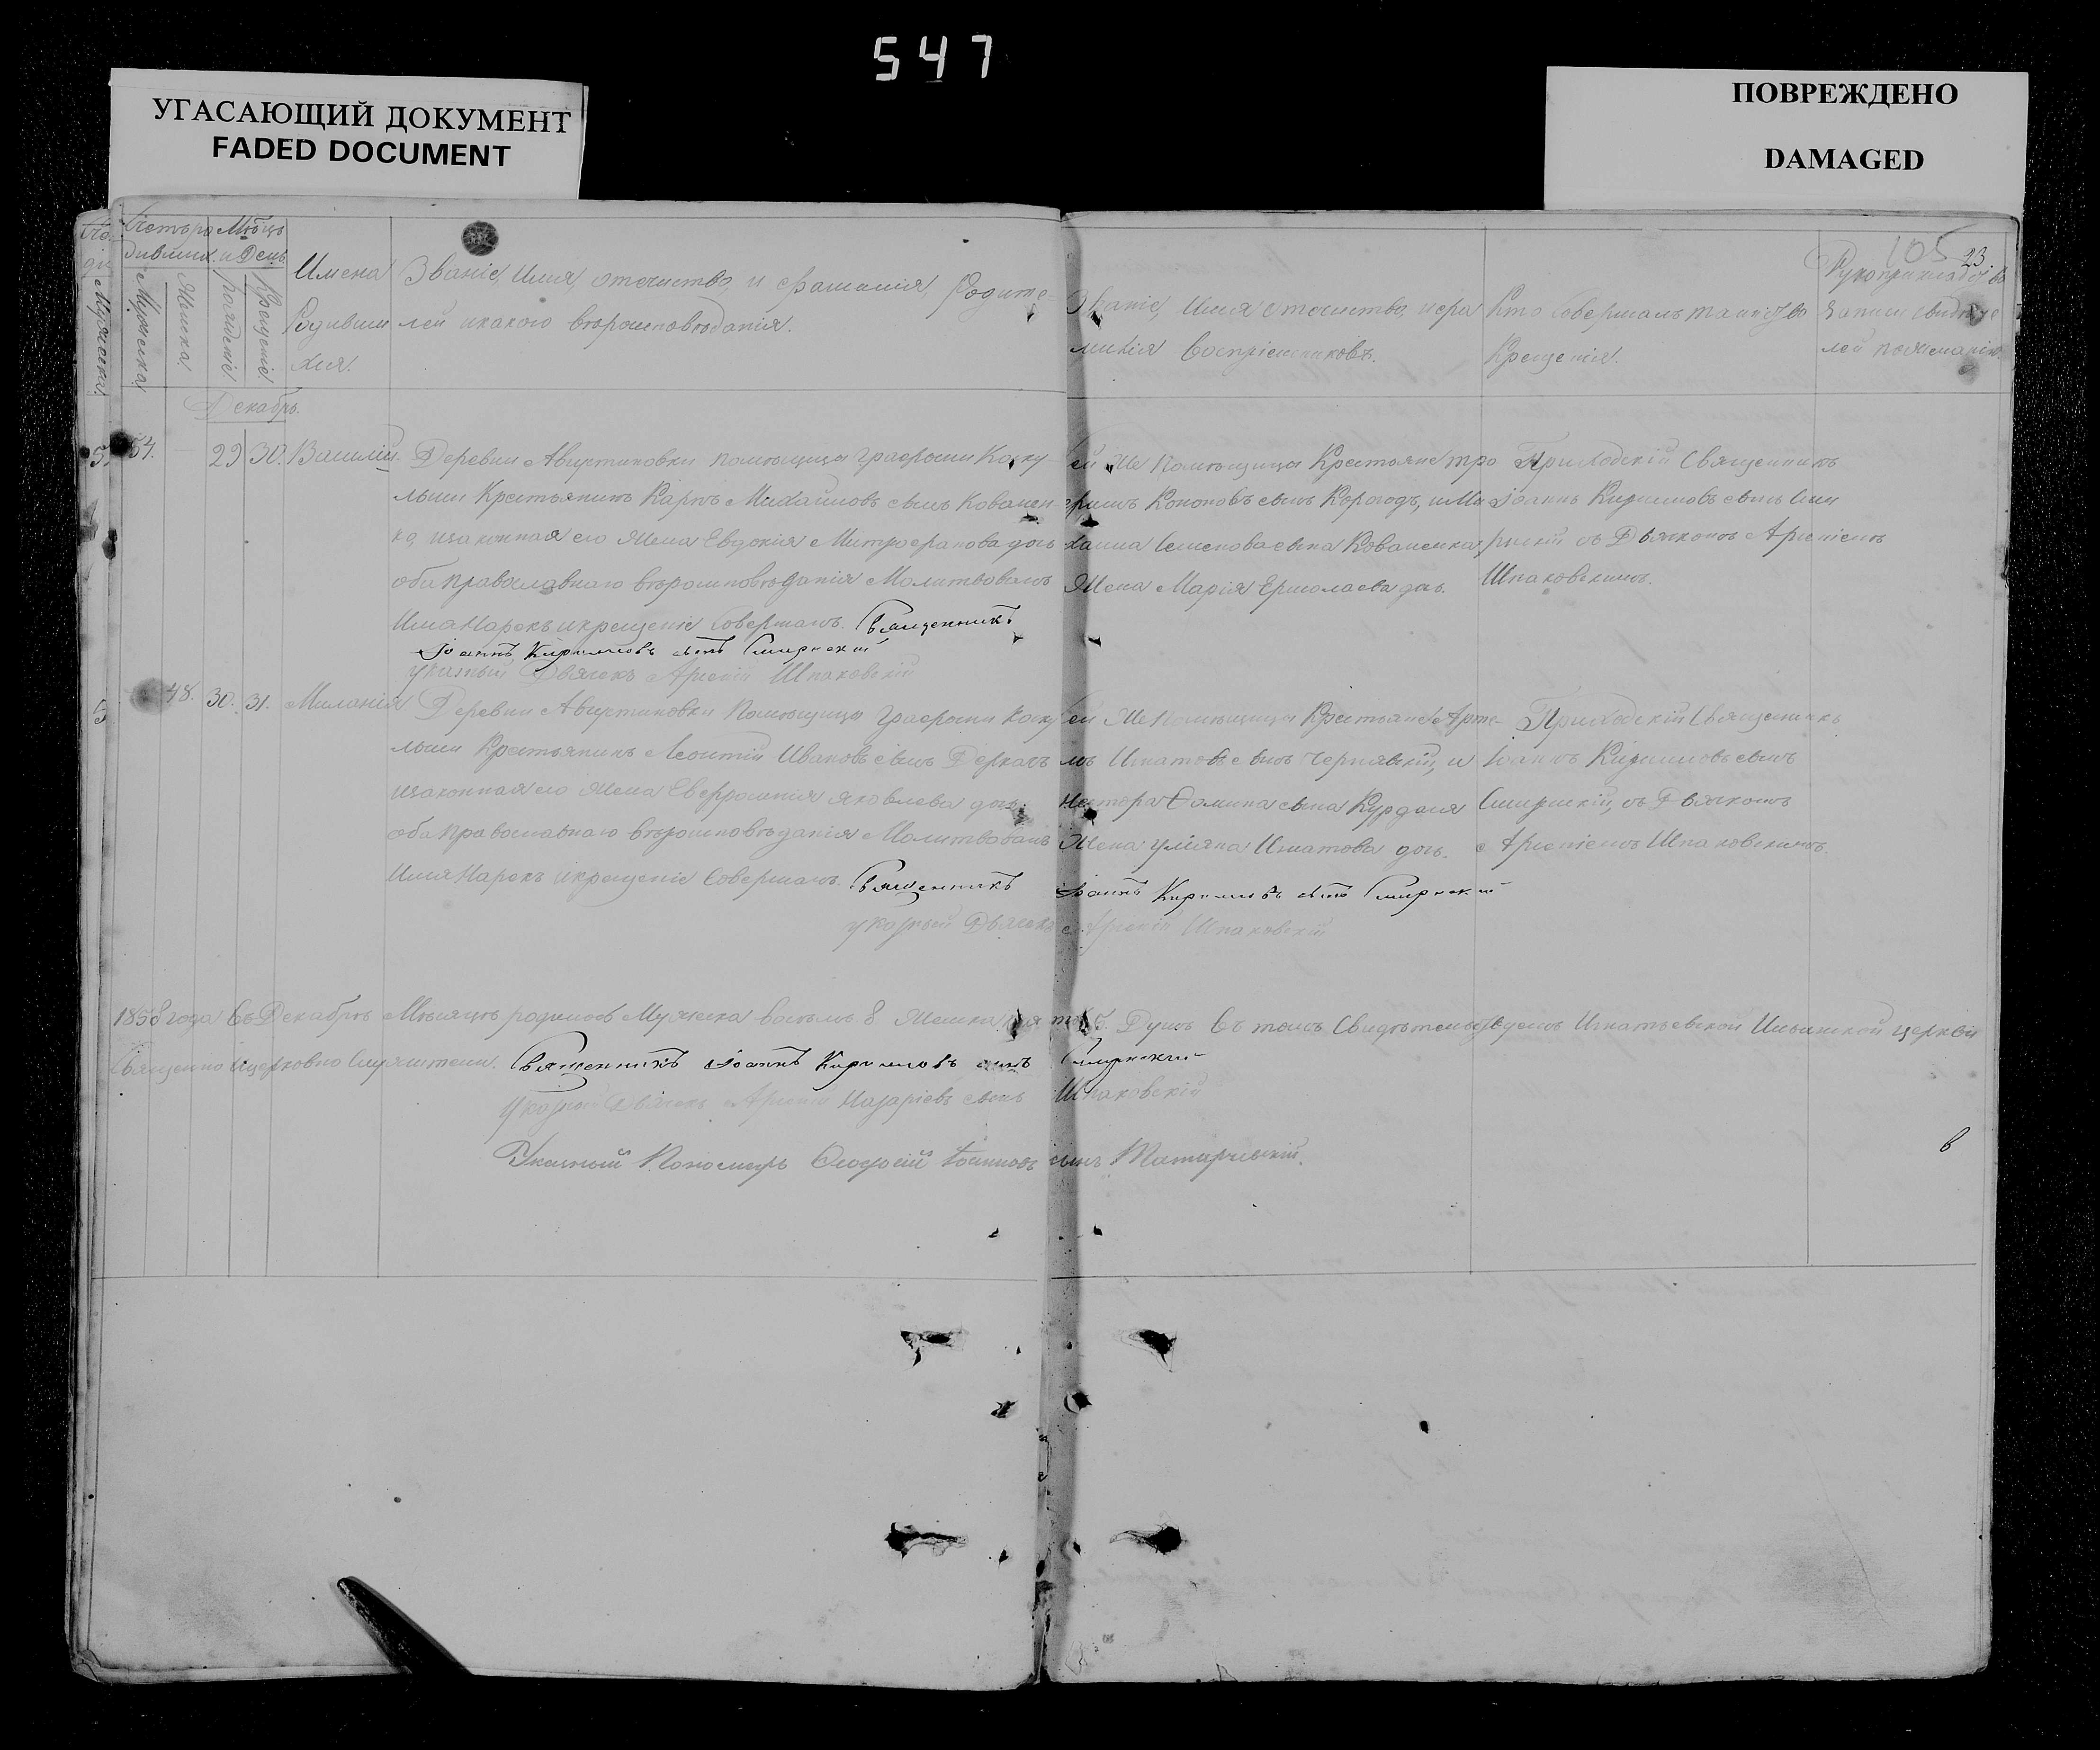 547
УГАСАЮЩИЙ ДОКУМЕНТ
FADED DOCUMENT
ПОВРЕЖДЕНО
DAMAGED
105
23.
Счетъ ро
дивших.
Мѣсцъ
и День
Мужеска
Женска.
рожденіе
Крещеніе
Имена
Родивши
хся.
Званіе, Имя, отечество, и фамилія, Родите-
лей икакого вѣроисповѣданія.
Званіе, Имя отечество, ифа
милія воспріемниковъ.
Кто Совершалъ таинство
Крещенія.
Рукоприкладство
Записи свидѣте
лей пожеланію
Декабрь.
54.
29 30. Василій.
Деревни Авиртиновки помѣщицы Графини
Крестьянинъ Карпъ Михайловъ сынъ Ковален-
ко, изаконная его Жена Евдокія Митрофанова дочь
оба Православнаго вѣроисповѣданія Молитвовалъ
Имя Нарекъ икрещеніе Совершалъ. Священникъ
Іоаннъ Кириловъ сынъ Смирнскій
указный Дьячокъ Арсеній Шпаковскій
Помѣщицы Крестьяне Тро
Кононовъ сынъ Корогодъ, иМи
хаила Семенова сына Коваленка
Жена Марія Ермолаева дочь.
Приходскій Священникъ
Іоаннъ Кириловъ сынъ Сми
рнскій съ Дьячкомъ Арсеніемъ
Шпаковскимъ.
48. 30. 31. Миланія
Деревни Авиртиновки Помѣщицы Графини
Крестьянинъ Леонтій Ивановъ сынъ Деркачъ
изаконная его Жена Евфросинія Яковлева дочь.
оба Православнаго вѣроисповѣданія Молитвовалъ
Имя Нарекъ икрещеніе Совершалъ. Священникъ Іоаннъ Кириловъ сынъ Смирнскій
указный Дьячокъ Арсеній Шпаковскій
Помѣщицы Крестьяне Арте-
мъ Игнатовъ сынъ Чернявскій, и
Нестора Фомина сына Курдаля
Жена Уліяна Игнатова дочь.
Приходскій Священникъ
Іоаннъ Кириловъ сынъ
Смирнскій, съ Дьячкомъ
Арсеніемъ Шпаковскимъ.
1858 года Въ Декабрѣ Мѣсяцѣ родилось Мужеска восемь 8 Женска пять 5. Душъ Въ томъ Свидѣтельствуемъ Игнатьевской Ильинской церкви
Священно ицерковно Служители. Священникъ Іоаннъ Кириловъ сынъ Смирнскій
Указный Дьячокъ Арсеній Назаріевъ сынъ Шпаковскій
Указный Пономарь Феодосій Іоанновъ сынъ
в